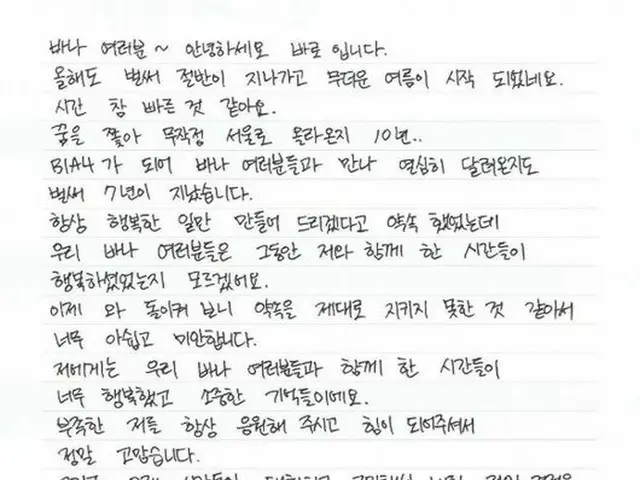 바나 여러분 ~ 안녕하세요 바로 입니다.
올해도 벌써 절반이 지나가고 무더운 여름이 시작 되었네요.
시간 참 빠른 것 같아요.
꿈을 쫓아 무작정 서울로 올라온지 10년..
B1A4가 되어 바나 여러분들과 만나 열심히 달려온지도
벌써 7년이 지났습니다.
항상 행복한 일만 만들어 드리겠다고 약속 했었는데
우리 바나 여러분들은 그동안 저와 함께 한 시간들이
행복하셨었는지 모르겠어요.
이제 와 돌이켜 보니 약속을 제대로 지키지 못한 것 같아서
너무 아쉽고 미안합니다.
저에게는 우리 바나 여러분들과 함께 한 시간들이
너무 행복했고 소중한 기억들이에요.
부족한 저를 항상 응원해 주시고 힘이 되어주셔서
정말 고맙습니다.